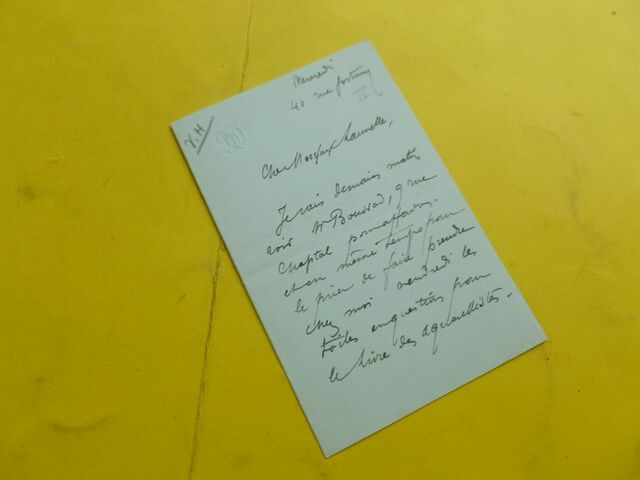 Mercredi
40 rue fortuny
Y.H
Cher Monsieur Launette,
Je vais demain matin
voir Mr Boussod, 9 rue
Chaptal pour affaires.
et en même temps pour
le prier de faire prendre
chez moi vendredi les
toiles en question pour
le livre des aquarellistes.